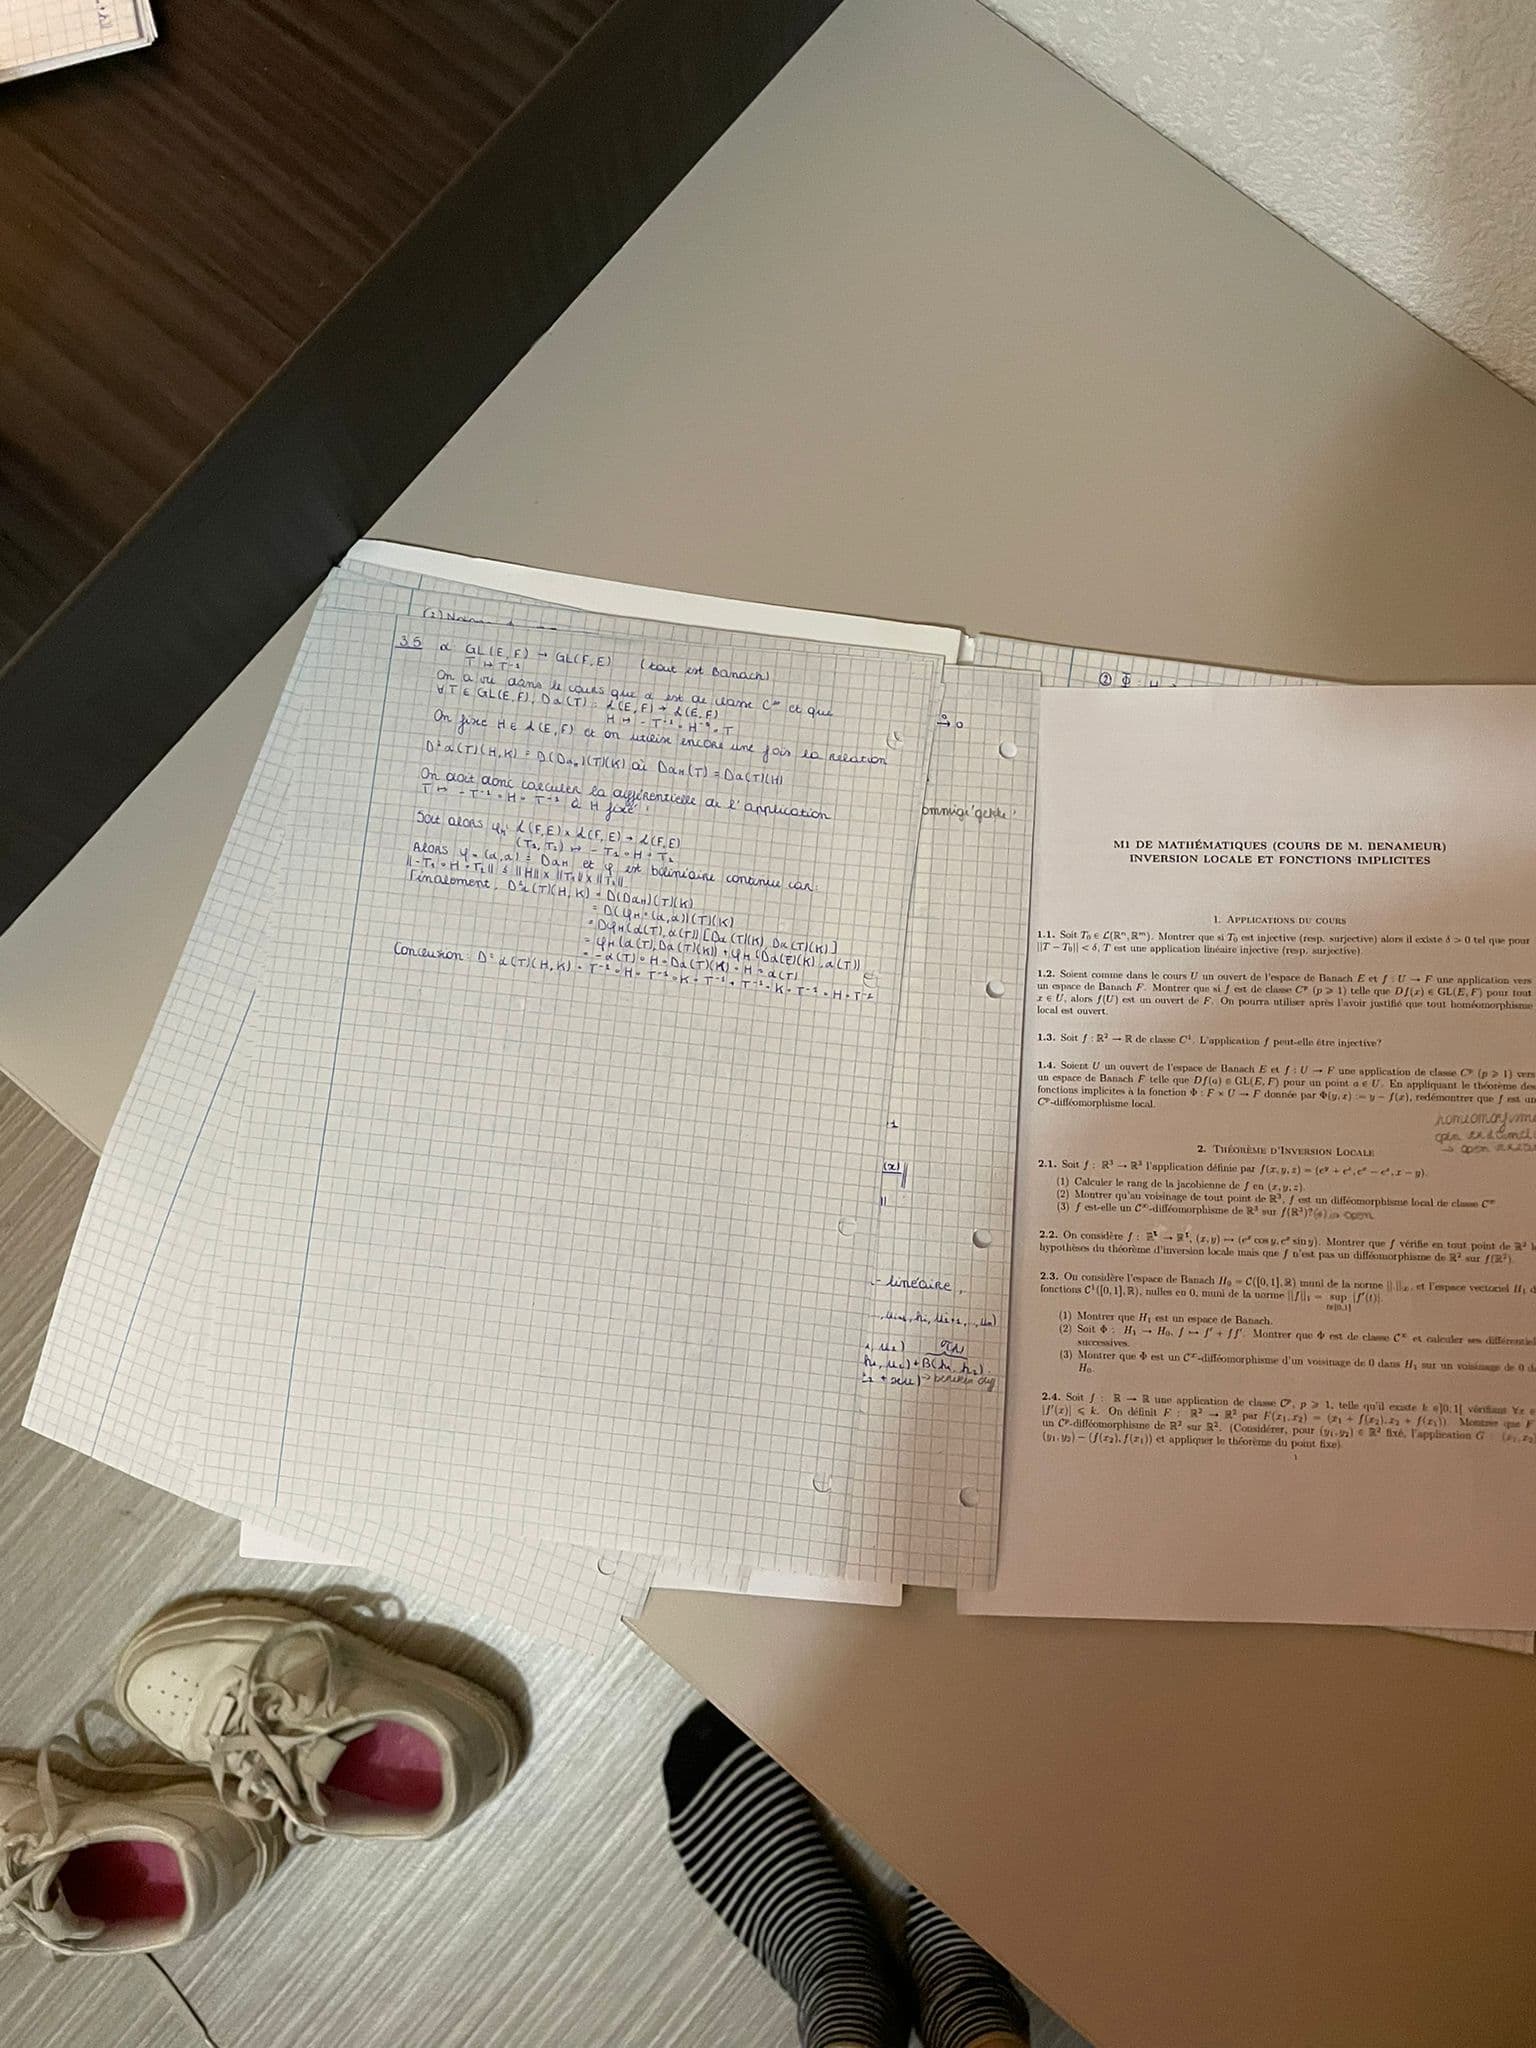 35 α GL(E,F) → GL(F,E) (tout est Banach)
T ↦ T⁻¹
On a vu dans le cours que α est de classe C^∞ et que
∀T ∈ GL(E,F), Dα(T): L(E,F) → L(E,F)
H ↦ - T⁻¹ ∘ H⁻¹ ∘ T
On fixe H ∈ L(E,F) et on utilise encore une fois la relation
D²α(T)(H,K) = D(Dα_H)(T)(K) où Dα_H(T) = Dα(T)(H)
On doit donc calculer la différentielle de l'application
T ↦ - T⁻¹ ∘ H ∘ T⁻¹ à H fixé !
Soit alors φ_H: L(F,E) × L(F,E) → L(F,E)
(T₁, T₂) ↦ - T₁ ∘ H ∘ T₂
Alors φ ∘ (α,α) = Dα_H et φ est bilinéaire continue car:
||-T₁ ∘ H ∘ T₂|| ≤ ||H|| × ||T₁|| × ||T₂||
Finalement, D²α(T)(H,K) = D(Dα_H)(T)(K)
= D(φ_H ∘ (α,α))(T)(K)
= Dφ_H(α(T),α(T)) [Dα(T)(K), Dα(T)(K)]
= φ_H(α(T),Dα(T)(K)) + φ_H(Dα(T)(K),α(T))
= -α(T) ∘ H ∘ Dα(T)(K) ∘ H ∘ α(T)
Conclusion: D²α(T)(H,K) = T⁻¹ ∘ H ∘ T⁻¹ ∘ K ∘ T⁻¹ + T⁻¹ ∘ K ∘ T⁻¹ ∘ H ∘ T⁻¹
→ 0
-1
(x)||
||
- linéaire,
h₁, u₂) + B(h₁, h₂)
② Φ: H
M1 DE MATHÉMATIQUES (COURS DE M. BENAMEUR)
INVERSION LOCALE ET FONCTIONS IMPLICITES
1. APPLICATIONS DU COURS
1.1. Soit T₀ ∈ L(ℝⁿ, ℝᵐ). Montrer que si T₀ est injective (resp. surjective) alors il existe δ > 0 tel que pour
||T − T₀|| < δ, T est une application linéaire injective (resp. surjective).
1.2. Soient comme dans le cours U un ouvert de l'espace de Banach E et f : U → F une application vers
un espace de Banach F. Montrer que si f est de classe Cᵖ (p ⩾ 1) telle que Df(x) ∈ GL(E, F) pour tout
x ∈ U, alors f(U) est un ouvert de F. On pourra utiliser après l'avoir justifié que tout homéomorphisme
local est ouvert.
1.3. Soit f : ℝ² → ℝ de classe C¹. L'application f peut-elle être injective?
1.4. Soient U un ouvert de l'espace de Banach E et f : U → F une application de classe Cᵖ (p ⩾ 1) vers
un espace de Banach F telle que Df(a) ∈ GL(E, F) pour un point a ∈ U. En appliquant le théorème des
fonctions implicites à la fonction Φ : F × U → F donnée par Φ(y, x) := y − f(x), redémontrer que f est un
Cᵖ-difféomorphisme local.
2. THÉORÈME D'INVERSION LOCALE
2.1. Soit f : ℝ³ → ℝ³ l'application définie par f(x, y, z) = (eʸ + eᶻ, eˣ − eᶻ, x − y).
(1) Calculer le rang de la jacobienne de f en (x, y, z).
(2) Montrer qu'au voisinage de tout point de ℝ³, f est un difféomorphisme local de classe C^∞
(3) f est-elle un C^∞-difféomorphisme de ℝ³ sur f(ℝ³)? open
2.2. On considère f : ℝ² → ℝ², (x, y) ↦ (eˣ cos y, eˣ sin y). Montrer que f vérifie en tout point de ℝ² l
hypothèses du théorème d'inversion locale mais que f n'est pas un difféomorphisme de ℝ² sur f(ℝ²).
2.3. On considère l'espace de Banach H₀ = C([0, 1], ℝ) muni de la norme ||.||_∞, et l'espace vectoriel H₁ d
fonctions C¹([0, 1], ℝ), nulles en 0, muni de la norme ||f||₁ = sup |f′(t)|.
t∈[0,1]
(1) Montrer que H₁ est un espace de Banach.
(2) Soit Φ : H₁ → H₀, f ↦ f′ + ff′. Montrer que Φ est de classe C^∞ et calculer ses différentiel
successives.
(3) Montrer que Φ est un C^∞-difféomorphisme d'un voisinage de 0 dans H₁ sur un voisinage de 0 d
H₀.
2.4. Soit f : ℝ → ℝ une application de classe Cᵖ, p ⩾ 1, telle qu'il existe k ∈]0, 1[ vérifiant ∀x ∈
|f′(x)| ⩽ k. On définit F : ℝ² → ℝ² par F(x₁, x₂) = (x₁ + f(x₂), x₂ + f(x₁)). Montrer que F
un Cᵖ-difféomorphisme de ℝ² sur ℝ². (Considérer, pour (y₁, y₂) ∈ ℝ² fixé, l'application G : (x₁, x₂)
(y₁, y₂) − (f(x₂), f(x₁)) et appliquer le théorème du point fixe).
1